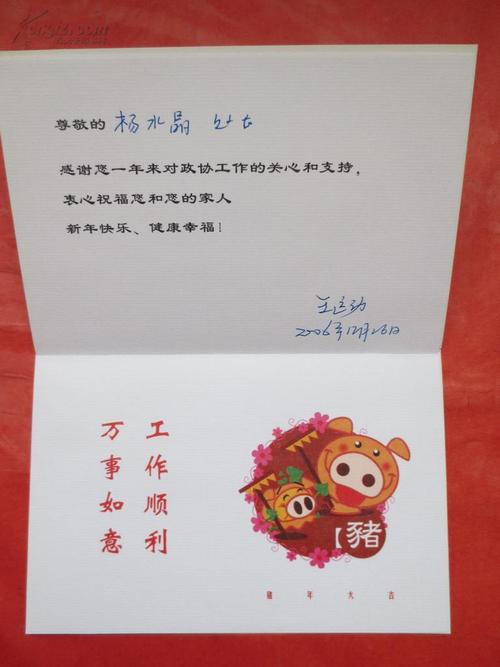 尊敬的 杨水晶 处长
感谢您一年来对政协工作的关心和支持，
衷心祝福您和您的家人
新年快乐、健康幸福！
王运动
2006年12月28日
工作顺利
万事如意
【豬
猪年大吉